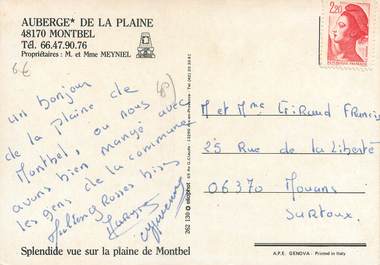 AUBERGE* DE LA PLAINE
48170 MONTBEL
Tél. 66.47.90.76
Propriétaires : M. et Mme MEYNIEL
6€
48)
un bonjour
de la plaine de
Montbel, ou nous
avons bien mangé avec
les gens de la commune
Grosses bises
Splendide vue sur la plaine de Montbel
262 130
2,20
M et Mme Giraud Francis
25 Rue de la Liberté
06370 Mouans
Sartoux.
A.P.E. GENOVA - Printed in Italy